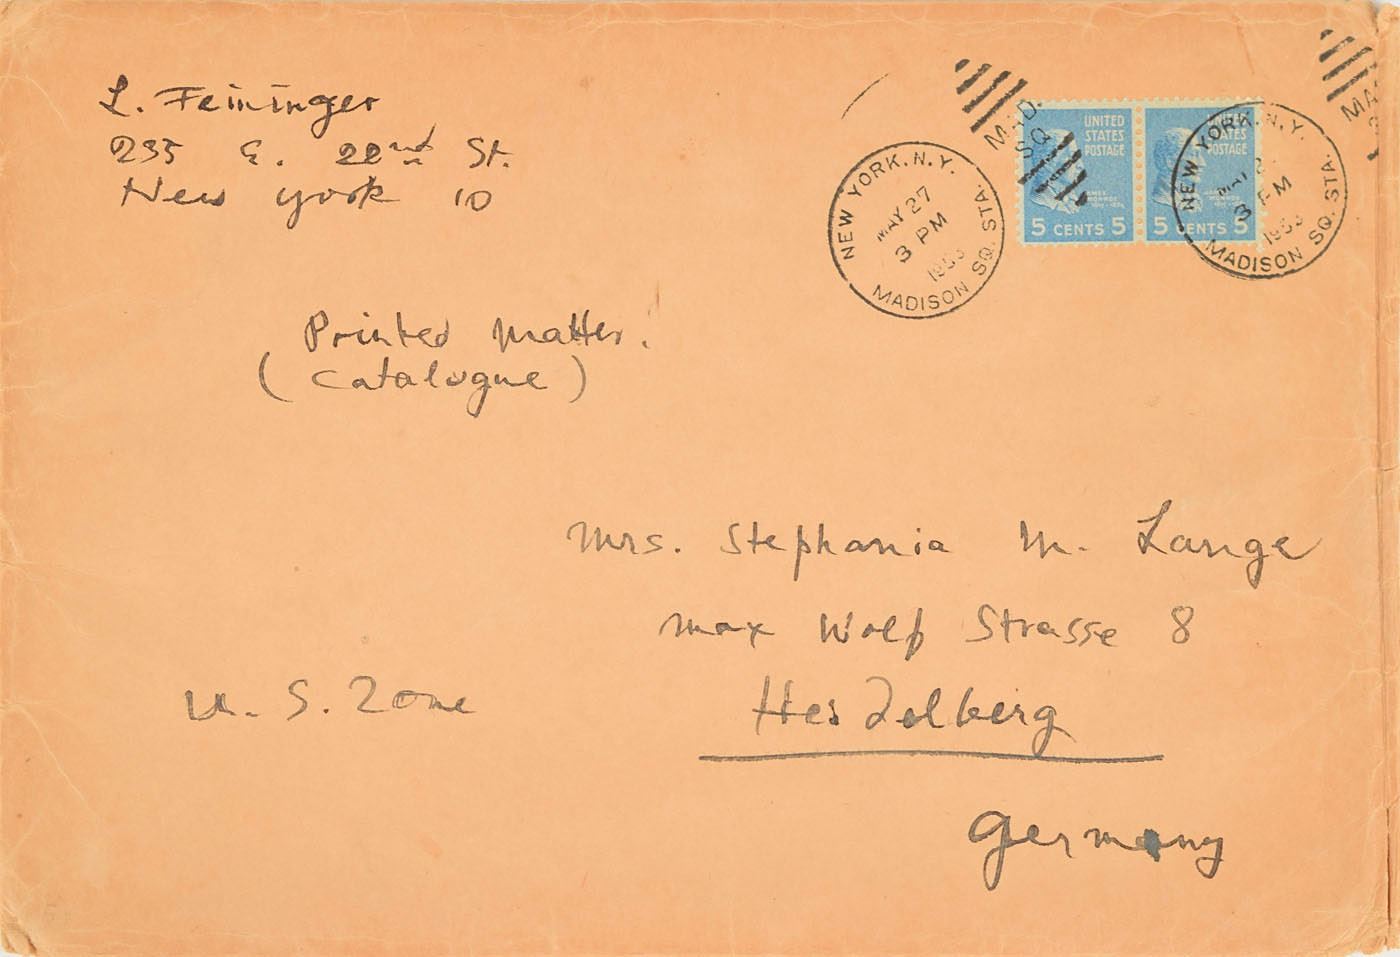 L. Feininger
235 E. 22nd St.
New York 10
Printed Matter.
(Catalogue)
Mrs. Stephania M. Lange
Max Wolf Strasse 8
Heidelberg
Germany
U. S. Zone
NEW YORK, N.Y.
MAY 27
3 PM
1953
MADISON SQ. STA.
MAD.
SQ.
UNITED
STATES
POSTAGE
JAMES
MONROE
5 CENTS 5
UNITED
STATES
POSTAGE
JAMES
MONROE
5 CENTS 5
NEW YORK, N.Y.
MAY 2
3 PM
1953
MADISON SQ. STA.
MA